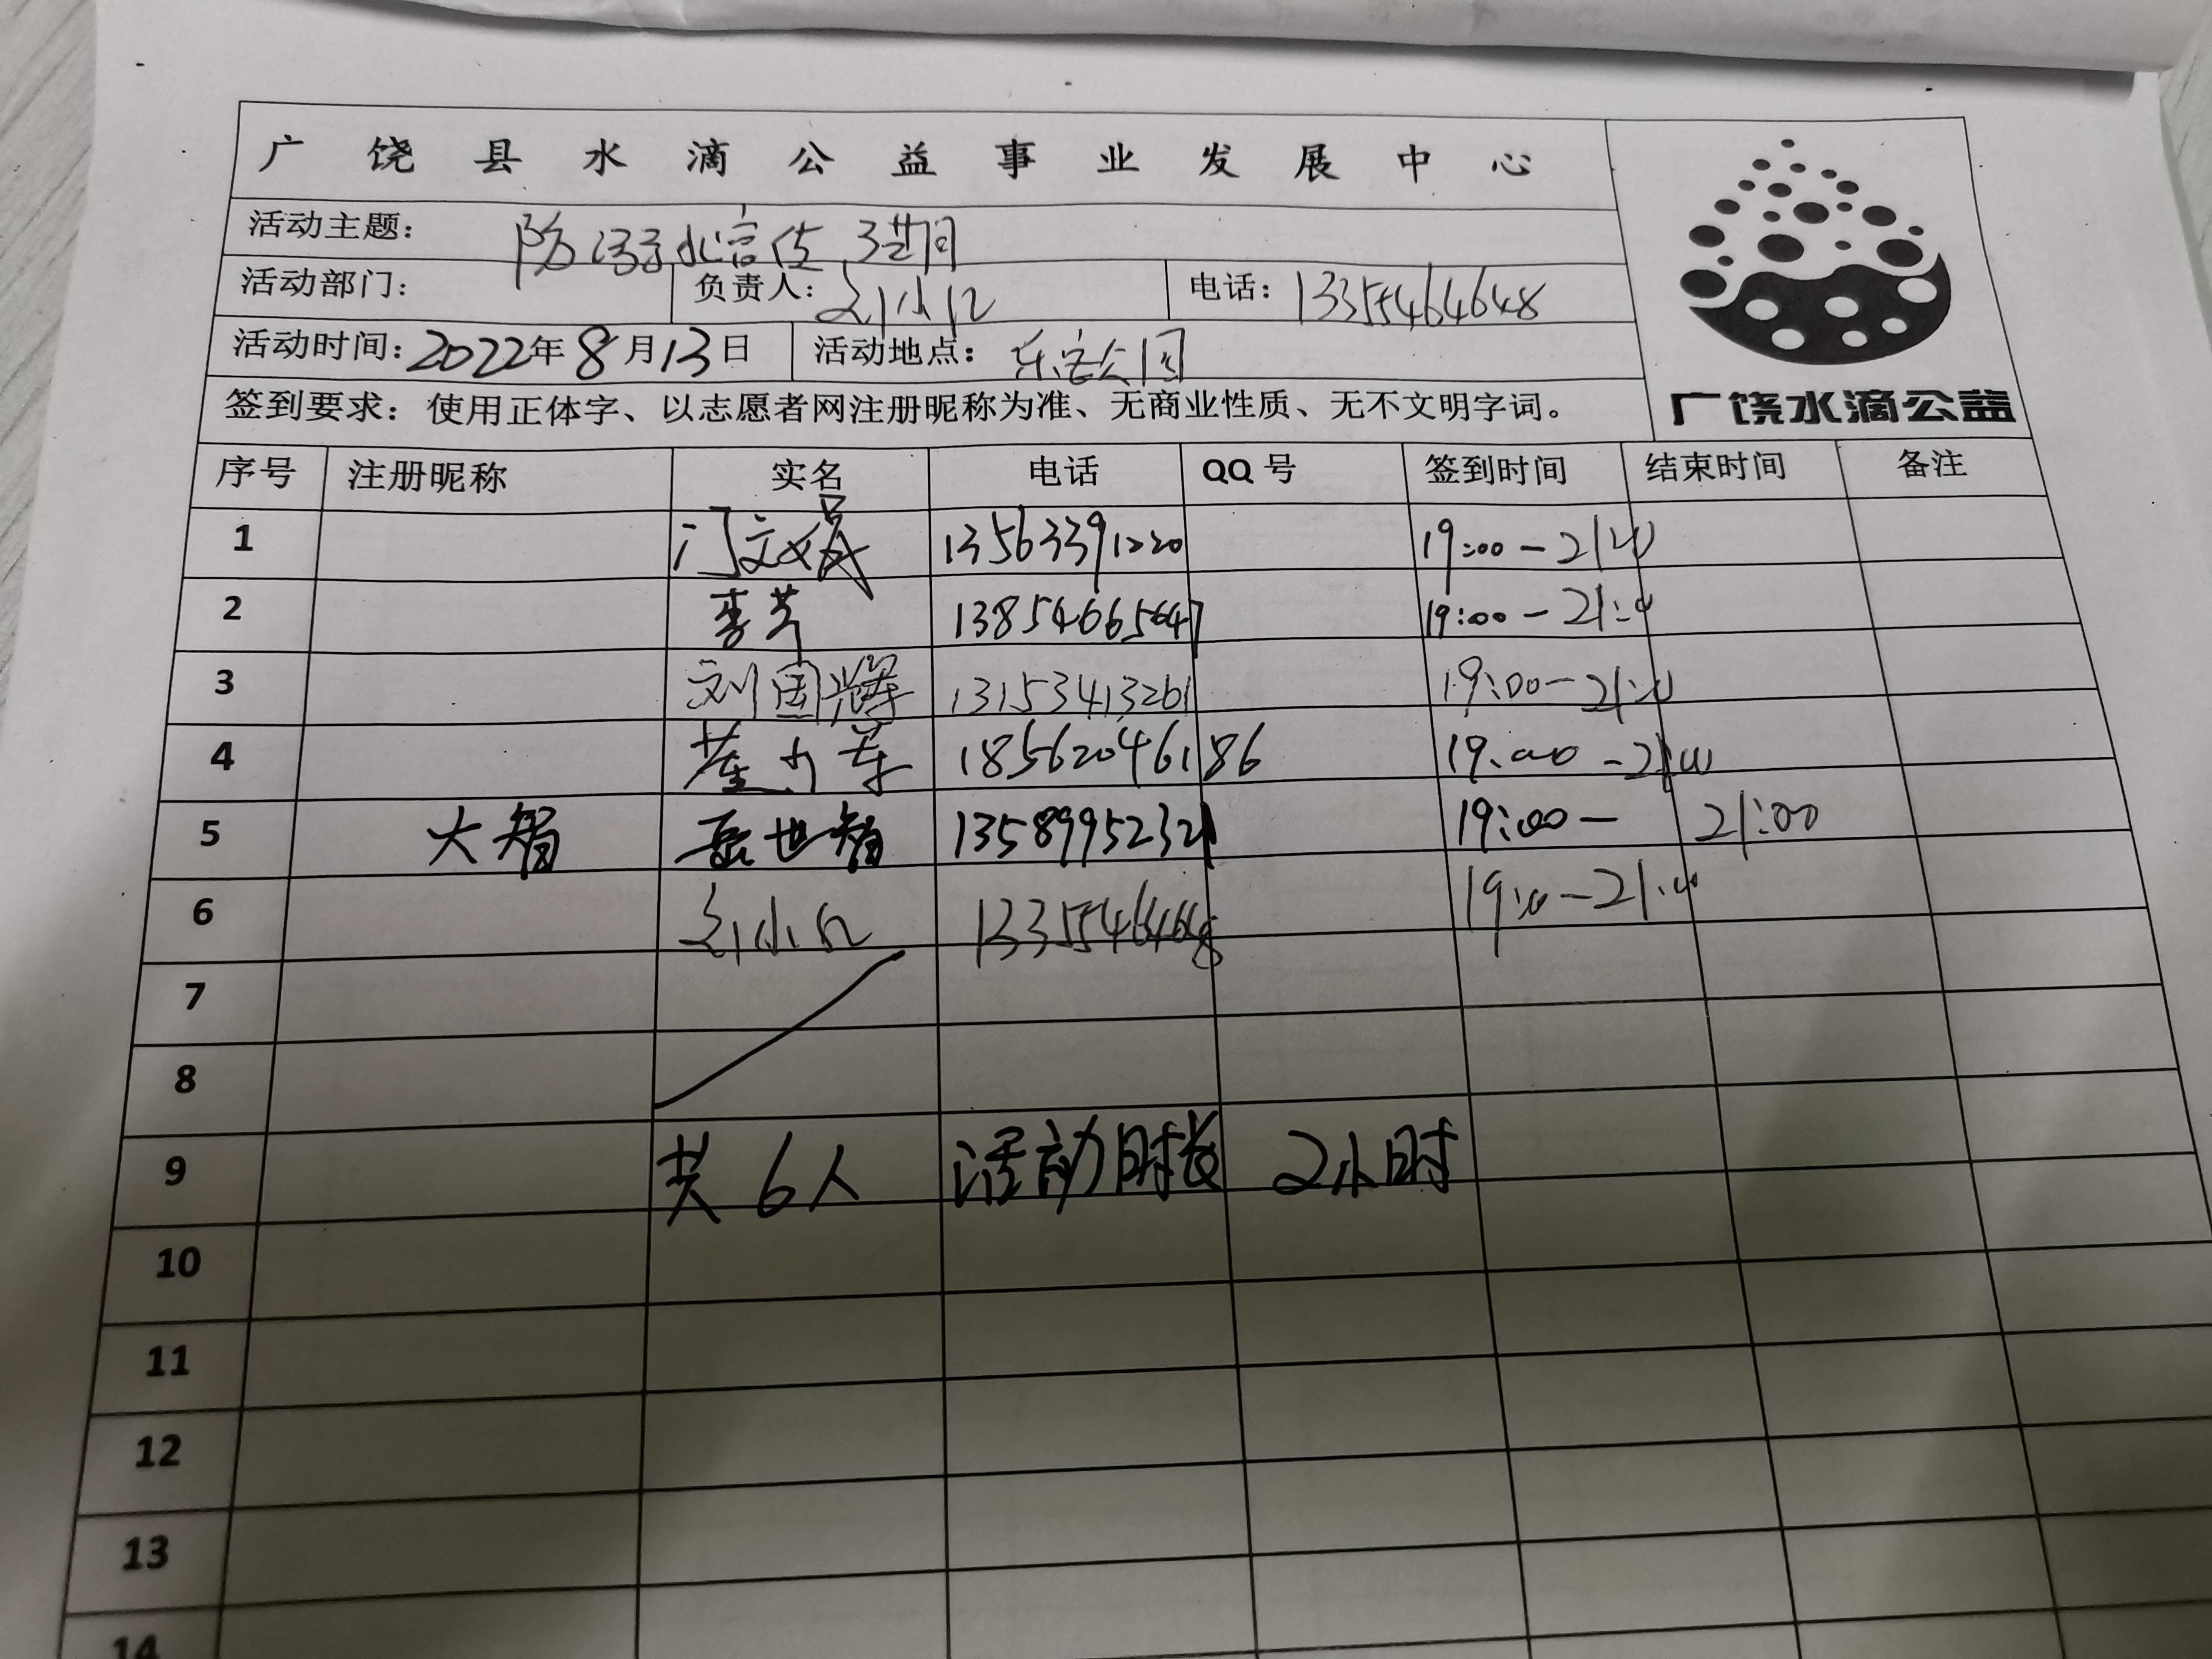 广饶县水滴公益事业发展中心
活动主题：防溺水宣传
活动部门： 负责人：刘小红 电话：13355464648
活动时间：2022年8月13日 活动地点：乐安公园
签到要求：使用正体字、以志愿者网注册昵称为准、无商业性质、无不文明字词。
广饶水滴公益
序号 注册昵称 实名 电话 QQ号 签到时间 结束时间 备注
1 门文 13563391220 19:00-21:00
2 李芹 13854665647 19:00-21:00
3 刘国辉 13153413261 19:00-21:00
4 董少军 18562046186 19:00-21:00
5 大智 岳世智 13589952321 19:00- 21:00
6 刘小红 13355464648 19:00-21:00
7
8
9 共6人 活动时长 2小时
10
11
12
13
14